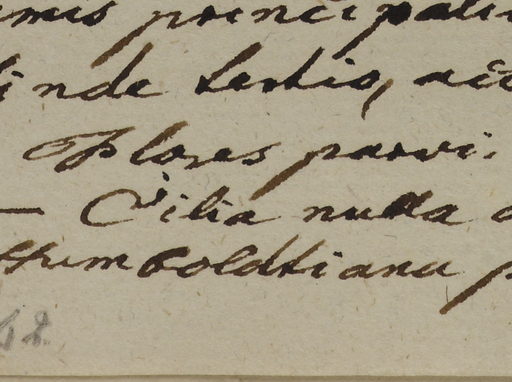 principali
inde tertio,
Flores parvi.
— Cilia nulla
Humboldtiana p